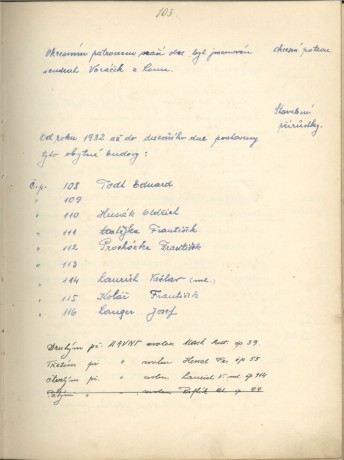 103
Okresním patronem naší obce byl jmenován
soudruh Voráček z Loun.
okresní patron
Stavební
přírůstky.
Od roku 1932 až do dnešního dne postaveny
tyto obytné budovy:
Č.p. 108 Todt Eduard
" 109
" 110 Husák Oldřich
" 111 František
" 112 Procházka František
" 113
" 114 Laurich Václav (ml.)
" 115 Kolář František
" 116 Langer Josef
Druhým př. MNV zvolen Mach Ant. čp 39
Třetím př. " zvolen čp 55
čtvrtým př. " zvolen Laurich V. ml. čp 114
Pátým " " zvolen čp